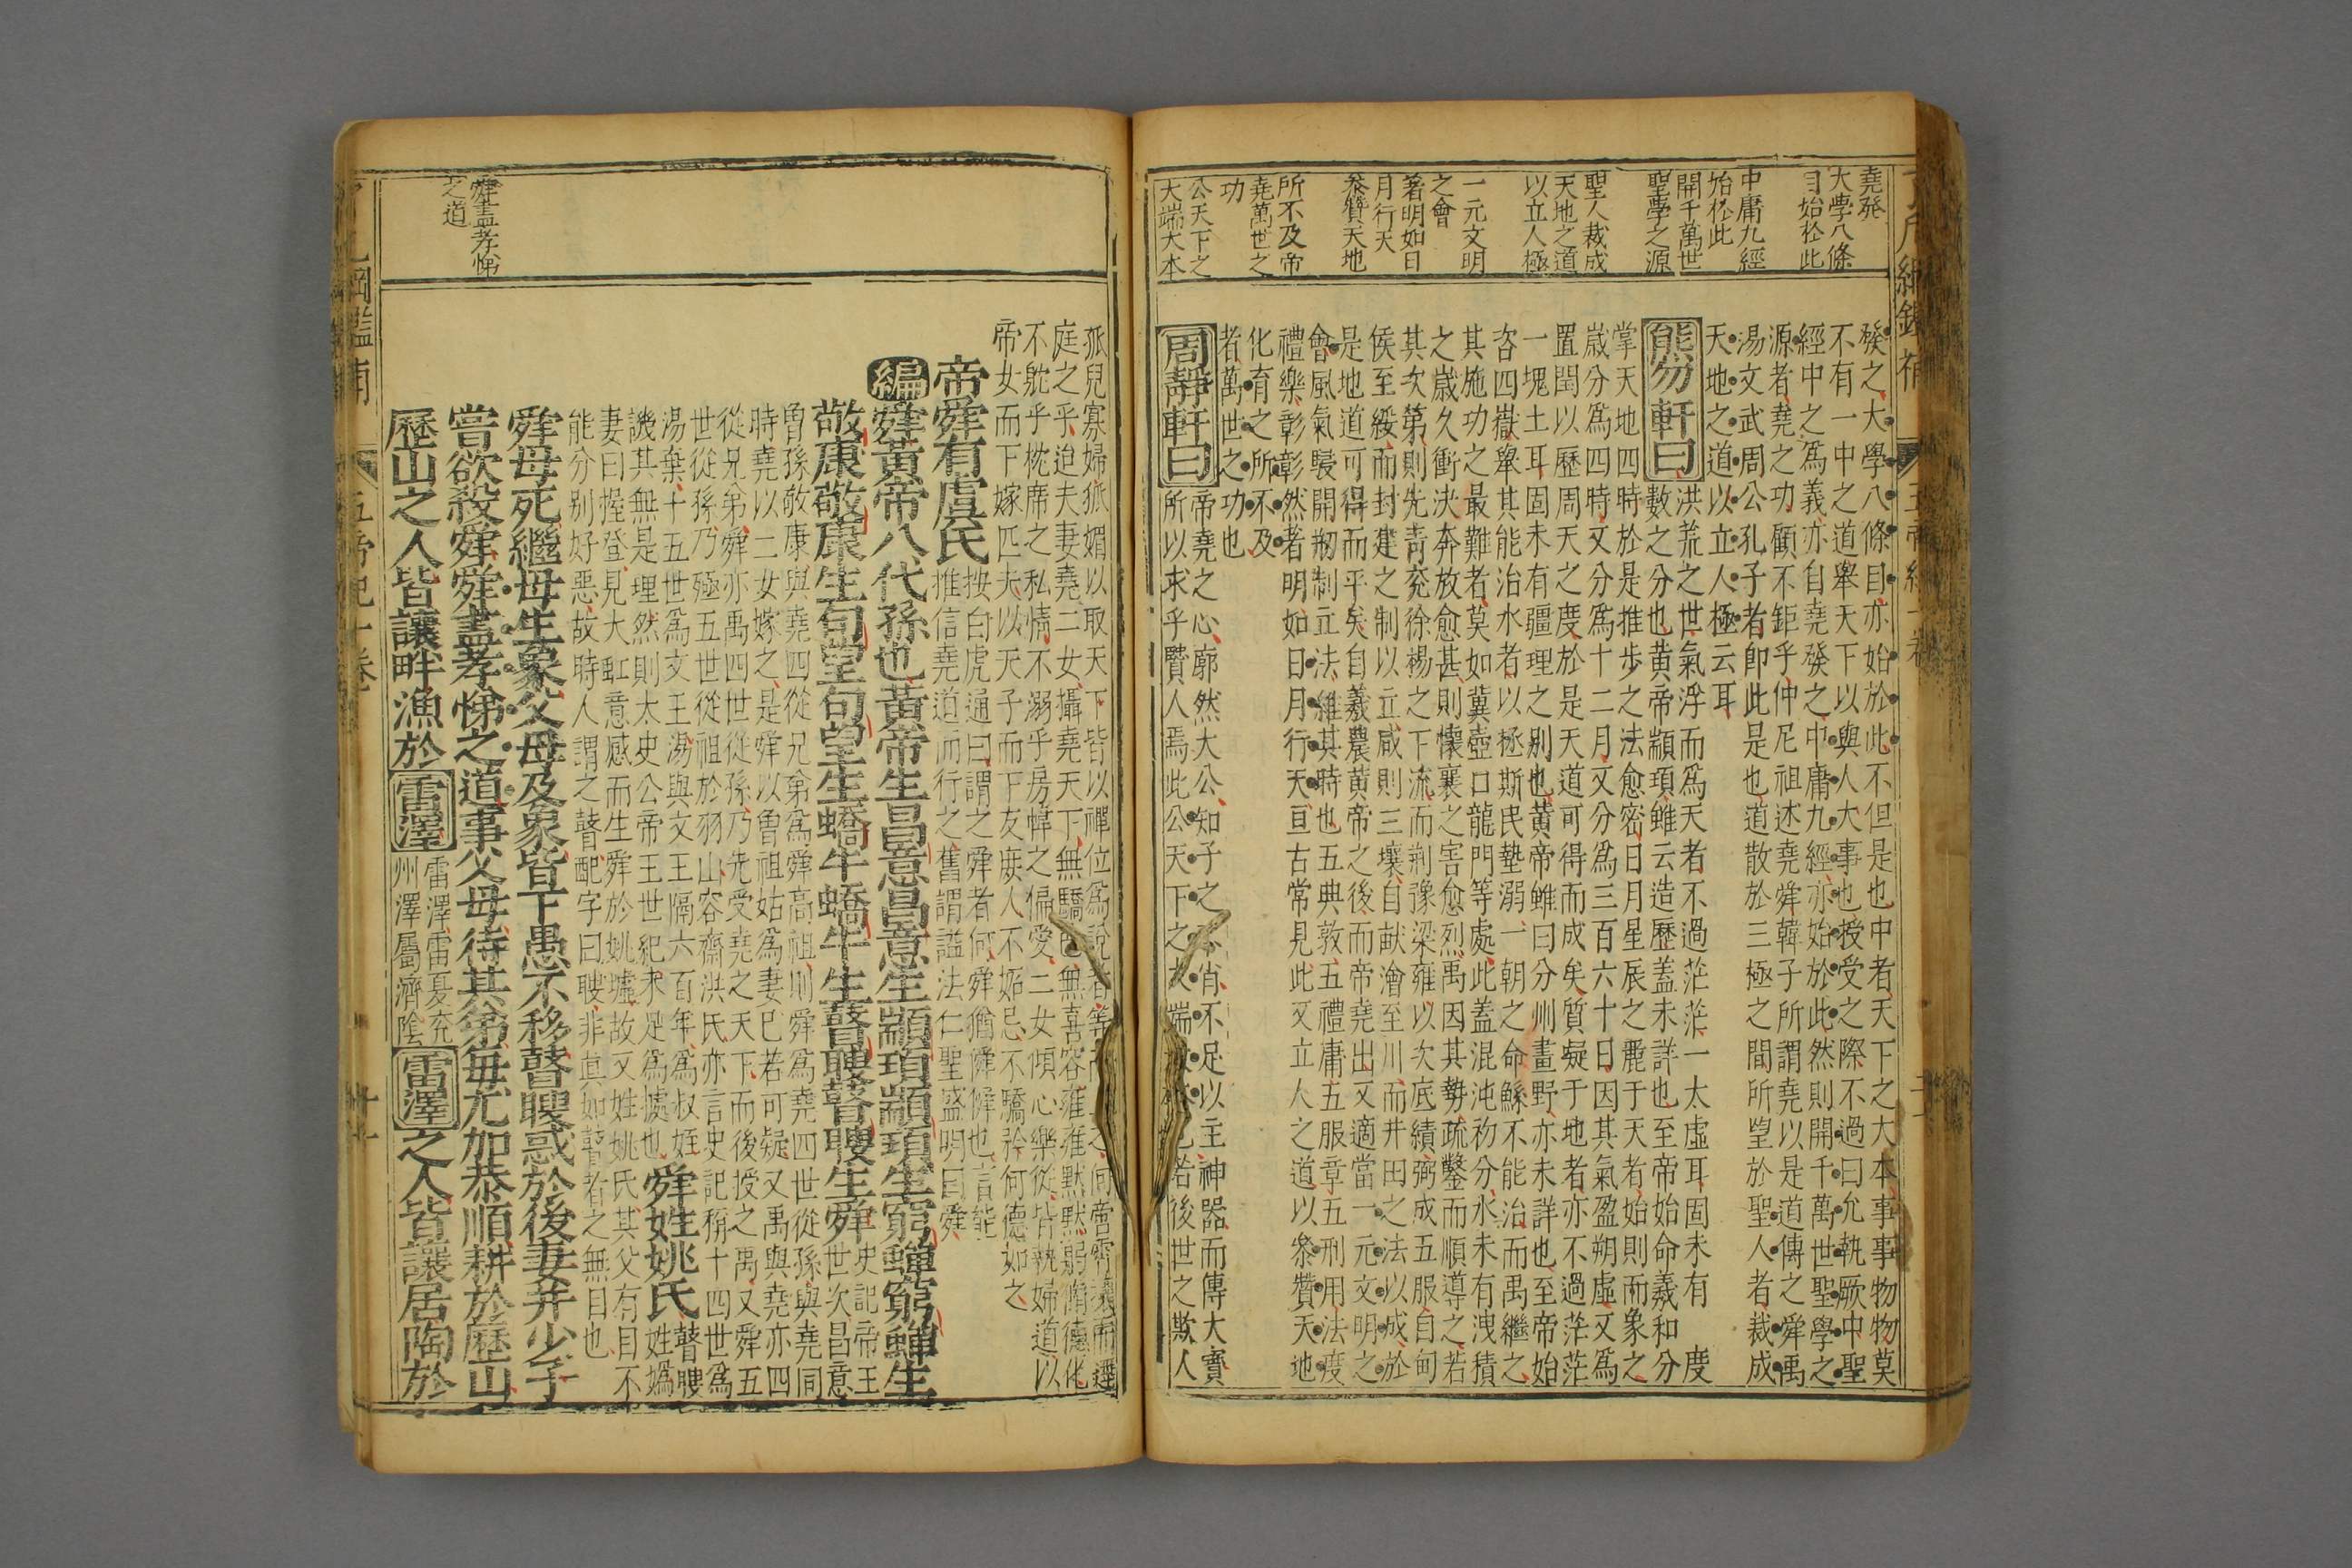 堯發
大學八條
目始於此
中庸九經
始於此
開千萬世
聖學之源
聖人裁成
天地之道
以立人極
一元文明
之會
著明如日
月行天
叅贊天地
所不及帝
堯萬世之
功
公天下之
大端大本
發之大學八條目亦始於此不但是也中者天下之大本事事物物莫
不有一中之道舉天下以與人大事也授受之際不過曰允執厥中聖
經中之爲義亦自堯發之中庸九經亦始於此然則開千萬世聖學之
源者堯之功顧不鉅乎仲尼祖述堯舜韓子所謂堯以是道傳之舜禹
湯文武周公孔子者卽此是也道散於三極之間所望於聖人者裁成
天地之道以立人極云耳
熊勿軒曰洪荒之世氣浮而爲天者不過茫茫一太虛耳固未有 度
數之分也黃帝顓頊雖云造歷蓋未詳也至帝始命羲和分
掌天地四時於是推步之法愈密日月星辰之麗于天者始則而象之
嵗分爲四時又分爲十二月又分爲三百六十日因其氣盈朔虛又爲
置閏以歷周天之度於是天道可得而成矣質凝于地者亦不過茫茫
一塊土耳固未有疆理之别也黃帝雖曰分州畫野亦未詳也至帝始
咨四嶽舉其能治水者以拯斯民墊溺一朝之命鯀不能治而禹繼之
其施功之最難者莫如冀壺口龍門等處此蓋混沌初分水未有洩積
之嵗久衝決奔放愈甚則懷襄之害愈烈禹因其勢疏鑿而順導之若
其次第則先青兖徐楊之下流而荆豫梁雍以次底績弼成五服自甸
侯至綏而封建之制以立咸則三壤自畎澮至川而井田之法以成於
是地道可得而平矣自羲農黃帝之後而帝堯出又適當一元文明之
會風氣駸開剏制立法維其時也五典敦五禮庸五服章五刑用法度
禮樂彰彰然者明如日月行天亘古常見此又立人之道以叅贊天地
化育之所不及
者萬世之功也
周靜軒曰帝堯之心廓然大公知子之不肖不足以主神器而傳大寶
所以求乎賢人焉此公天下之大端大本也若後世之欺人
舜盡孝悌
之道
孤兒寡婦狐媚以取天下皆以禪位爲說者等
庭之乎迫夫妻堯二女攝堯天下無驕色無喜容雍雍默默躬脩德化
不鴕乎枕席之私情不溺乎房幃之偏愛二女傾心樂從皆執婦道以
帝女而下嫁匹夫以天子而下友庶人不妬忌不驕矜何德如之
帝舜有虞氏按白虎通曰謂之舜者何舜猶僢僢也言能
推信堯道而行之舊謂謚法仁聖盛明曰舜
編舜黃帝八代孫也黃帝生昌意昌意生顓頊顓頊生窮蟬窮蟬生
敬康敬康生句望句望生蟜牛蟜牛生瞽瞍瞽瞍生舜史記帝王
世次昌意
曾孫敬康與堯四從兄弟爲舜高祖則舜爲堯四世從孫與堯同
時堯以二女嫁之是舜以曾祖姑爲妻巳若可疑又禹與堯亦四
從兄弟舜亦禹四世從孫乃先受堯之天下而後授之禹又舜五
世從孫乃殛五世從祖於羽山容齋洪氏亦言史記稱十四世爲
湯棄十五世爲文王湯與文王隔六百年爲叔姪
譏其無是理然則太史公帝王世紀未足爲據也舜姓姚氏瞽瞍
姓嬀
妻曰握登見大虹意感而生舜於姚墟故又姓姚氏其父有目不
能分别好惡故時人謂之瞽配字曰瞍非眞如瞽者之無目也
舜母死繼母生象父母及象皆下愚不移瞽瞍惑於後妻并少子
嘗欲殺舜舜盡孝悌之道事父母待其弟每尤加恭順耕於歷山
歷山之人皆讓畔漁於雷澤雷澤雷夏兖
州澤屬濟陰雷澤之人皆讓居陶於